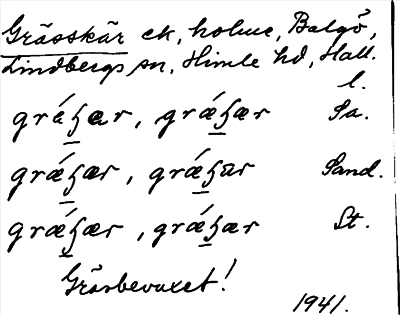 Grässkär ek, holme, Balgö,
Lindbergs sn, Himle hd, Hall.
l.
gráʒ̱ær, grǽʒ̱ær Sa.
grǽʒ̱ær, grǽʒ̱ær Sand.
grǽʒ̱ær, grǽʒ̱ær St.
Gräsbevuxet!
1941.